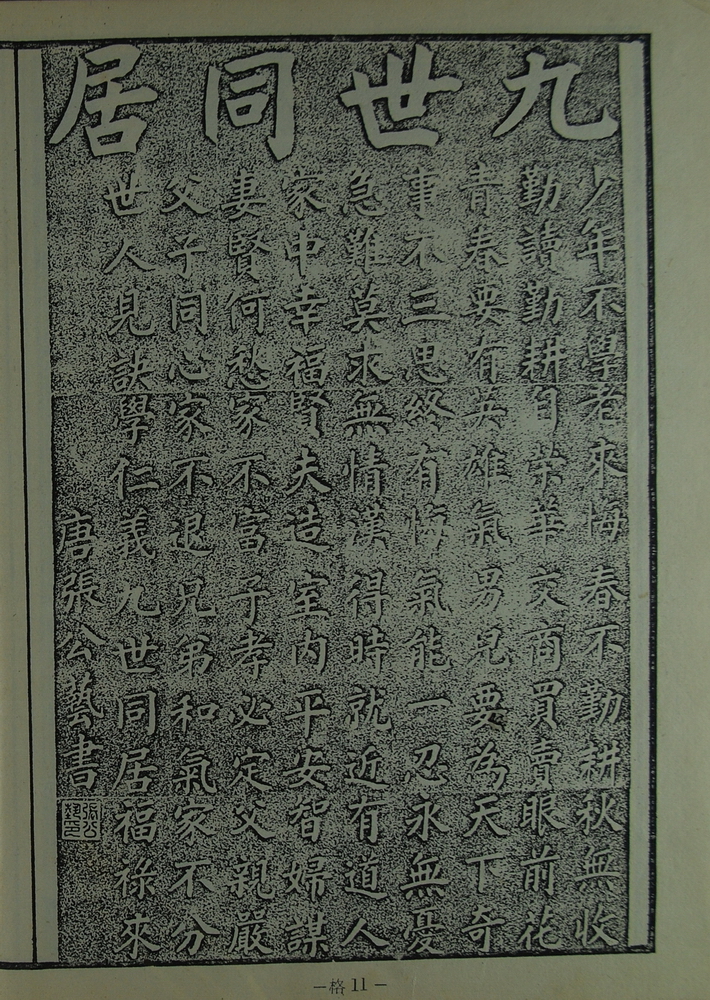 九世同居
少年不學老來悔春不勤耕秋無收
勤讀勤耕自榮華交商買賣眼前花
青春要有英雄氣男兒要為天下奇
事不三思終有悔氣能一忍永無憂
急難莫求無情漢得時就近有道人
家中幸福賢夫造室內平安智婦謀
妻賢何愁家不富子孝必定父親嚴
父子同心家不退兄弟和氣家不分
世人見訣學仁義九世同居福祿來
唐張公藝書
張公藝印
—格 11—